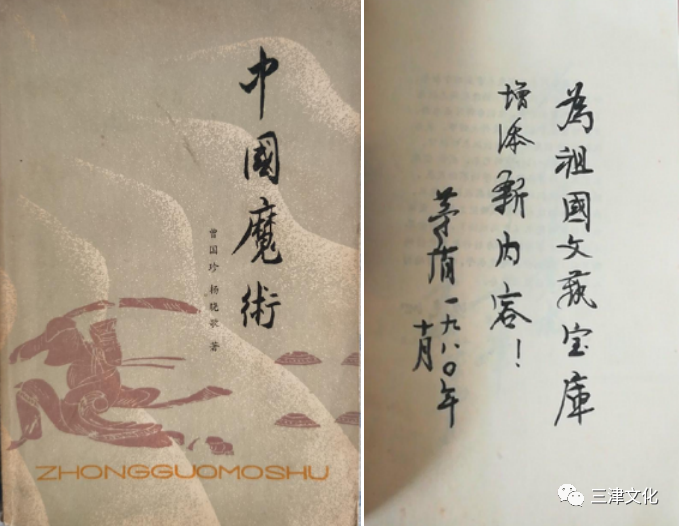 中國魔術
曾国珍 杨晓歌 著
ZHONGGUOMOSHU
為祖國文藝宝庫
增添新内容！
茅盾 一九八〇年
十月
三津文化